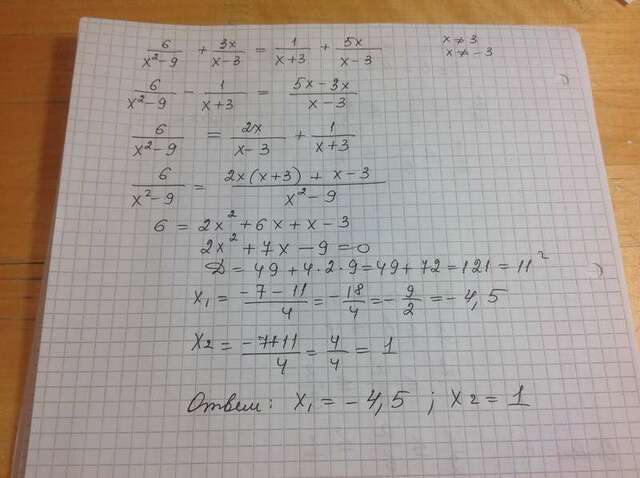 6/(x²-9) + 3x/(x-3) = 1/(x+3) + 5x/(x-3)
x ≠ 3
x ≠ -3
6/(x²-9) - 1/(x+3) = (5x-3x)/(x-3)
6/(x²-9) = 2x/(x-3) + 1/(x+3)
6/(x²-9) = (2x(x+3) + x-3)/(x²-9)
6 = 2x² + 6x + x - 3
2x² + 7x - 9 = 0
D = 49 + 4·2·9 = 49 + 72 = 121 = 11²
x₁ = (-7-11)/4 = -18/4 = -9/2 = -4,5
x₂ = (-7+11)/4 = 4/4 = 1
Ответ: x₁ = -4,5 ; x₂ = 1